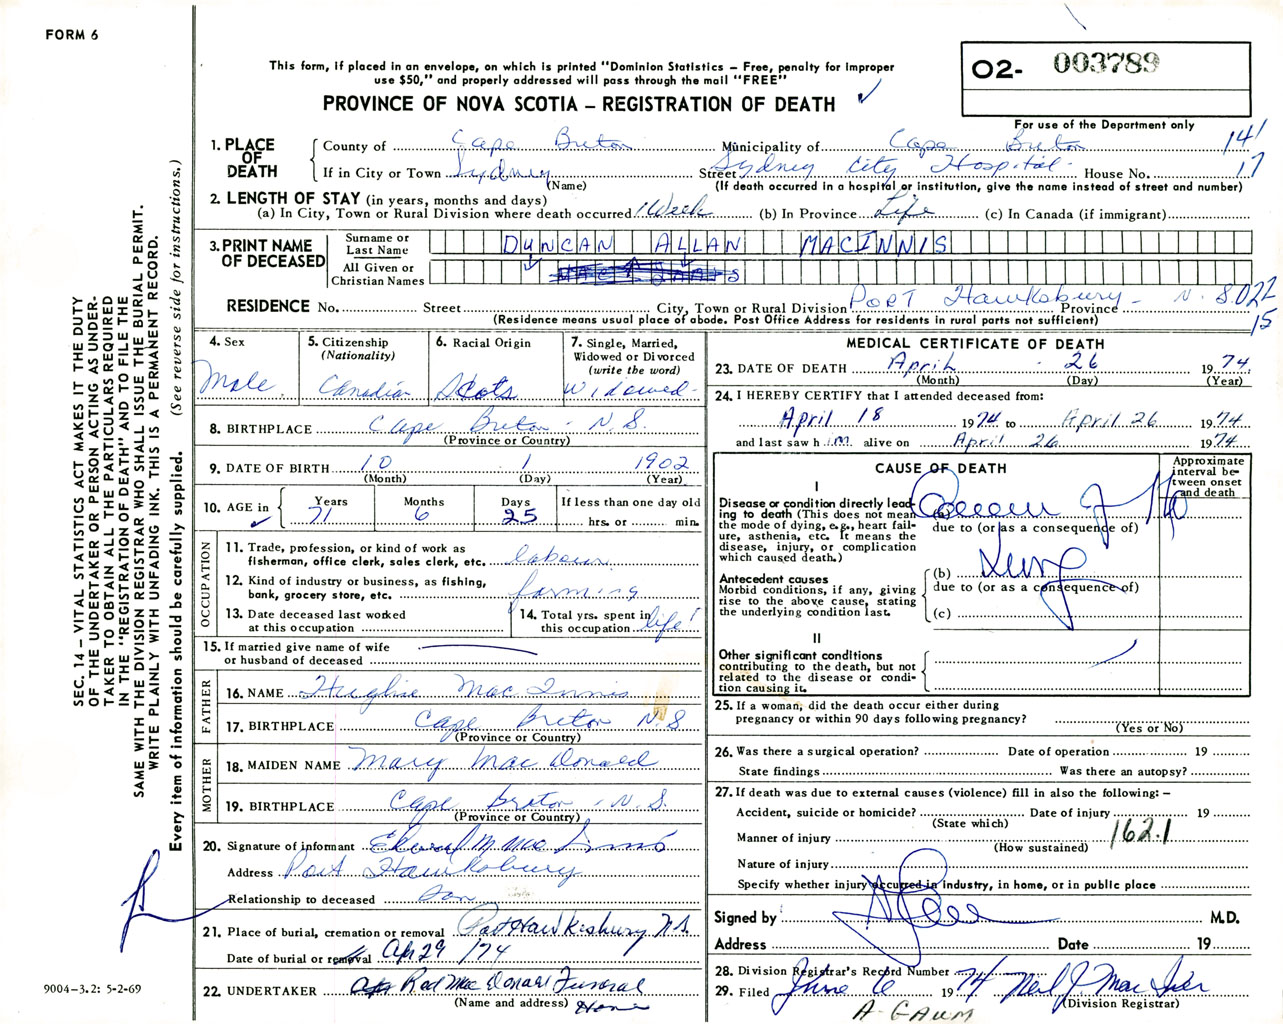 FORM 6
This form, if placed in an envelope, on which is printed "Dominion Statistics – Free, penalty for improper
use $50," and properly addressed will pass through the mail "FREE"
PROVINCE OF NOVA SCOTIA – REGISTRATION OF DEATH
O2- 003789
For use of the Department only
SEC. 14 – VITAL STATISTICS ACT MAKES IT THE DUTY
OF THE UNDERTAKER OR PERSON ACTING AS UNDER-
TAKER TO OBTAIN ALL THE PARTICULARS REQUIRED
IN THE "REGISTRATION OF DEATH" AND TO FILE THE
SAME WITH THE DIVISION REGISTRAR WHO SHALL ISSUE THE BURIAL PERMIT.
WRITE PLAINLY WITH UNFADING INK. THIS IS A PERMANENT RECORD.
Every item of information should be carefully supplied. (See reverse side for instructions.)
1. PLACE OF DEATH
County of Cape Breton Municipality of Cape Breton 141
If in City or Town Sydney Street Sydney City Hospital House No. 17
(Name) (If death occurred in a hospital or institution, give the name instead of street and number)
2. LENGTH OF STAY (in years, months and days)
(a) In City, Town or Rural Division where death occurred 1 Week (b) In Province Life (c) In Canada (if immigrant)
3. PRINT NAME OF DECEASED
Surname or Last Name DUNCAN ALLAN MACINNIS
All Given or Christian Names
RESIDENCE No. Street City, Town or Rural Division Port Hawksbury - Province N.S. 022
15
(Residence means usual place of abode. Post Office Address for residents in rural parts not sufficient)
4. Sex
Male
5. Citizenship
(Nationality)
Canadian
6. Racial Origin
Scots
7. Single, Married,
Widowed or Divorced
(write the word)
Widowed
8. BIRTHPLACE Cape Breton - N.S.
(Province or Country)
9. DATE OF BIRTH 10 1 1902
(Month) (Day) (Year)
10. AGE in Years 71 Months 6 Days 25 If less than one day old
hrs. or min.
OCCUPATION
11. Trade, profession, or kind of work as
fisherman, office clerk, sales clerk, etc. labour
12. Kind of industry or business, as fishing,
bank, grocery store, etc. farming
13. Date deceased last worked
at this occupation
14. Total yrs. spent in
this occupation life
15. If married give name of wife
or husband of deceased
FATHER
16. NAME Hughie Mac Innis
17. BIRTHPLACE Cape Breton N.S
(Province or Country)
MOTHER
18. MAIDEN NAME Mary Mac Donald
19. BIRTHPLACE Cape Breton - N.S.
(Province or Country)
20. Signature of informant
Address Port Hawksbury
Relationship to deceased Son
21. Place of burial, cremation or removal Port Hawkesbury N.S.
Date of burial or removal Apr 29 /74
22. UNDERTAKER Rod Mac Donald Funeral
(Name and address) Home
9004-3.2: 5-2-69
MEDICAL CERTIFICATE OF DEATH
23. DATE OF DEATH April 26 1974
(Month) (Day) (Year)
24. I HEREBY CERTIFY that I attended deceased from:
April 18 1974 to April 26 1974
and last saw him alive on April 26 1974
CAUSE OF DEATH
Approximate
interval be-
tween onset
and death
I
Disease or condition directly lead-
ing to death (This does not mean
the mode of dying, e.g., heart fail-
ure, asthenia, etc. It means the
disease, injury, or complication
which caused death.)
due to (or as a consequence of)
Antecedent causes
Morbid conditions, if any, giving
rise to the above cause, stating
the underlying condition last.
(b) Lung
due to (or as a consequence of)
(c)
II
Other significant conditions
contributing to the death, but not
related to the disease or condi-
tion causing it.
25. If a woman, did the death occur either during
pregnancy or within 90 days following pregnancy?
(Yes or No)
26. Was there a surgical operation? Date of operation 19
State findings Was there an autopsy?
27. If death was due to external causes (violence) fill in also the following: –
Accident, suicide or homicide? Date of injury 19
(State which)
Manner of injury 162.1
(How sustained)
Nature of injury
Specify whether injury occurred in industry, in home, or in public place
Signed by M.D.
Address Date 19
28. Division Registrar's Record Number
29. Filed June 6 1974 Neil J. Mac Iver
(Division Registrar)